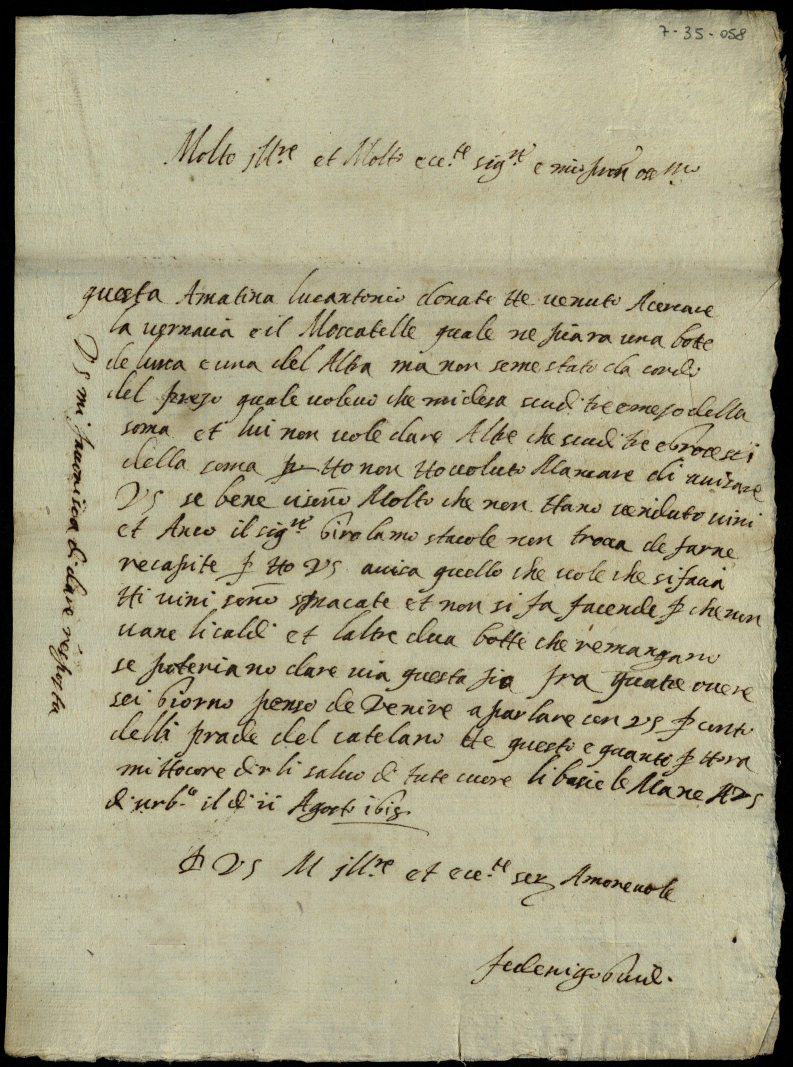 7-35-058
Molto Ill.re et Molto ecc.te sig.re e mio oss.mo
questa Amatina lucantonio donate He venuto Acercare
la vernacia e il Moscatelle quale ne piiara una botte
de luna e una del Altra ma non seme stato da cordo
del prezo quale volevo che mi desa scudi tre e mezo della
soma et lui non vole dare Altre che scudi tre e
della soma p Ho non Ho voluto Mancare di avisare
VS se bene Molto che non Hano venduto vini
et Anco il sig.re Girolamo stacole non trova de farne
recapite p Ho VS avisa quello che vole che si facia
Hi vini sono et non si fa facende p che non
vane li caldi et laltre dua botte che remangano
se poteriano dare via questa fra quatre overe
sei Giorno penso de Venire a parlare con VS p conto
delli prade del catelano He questo e quanto p Hora
mi Hocore dirli salvo di tute cuore li basio le Mane A VS
di urb.o il di ii Agosto 161
D VS M Ill.re et ecc.te Amorevole
federigo
VS mi favorisca di dare risposta